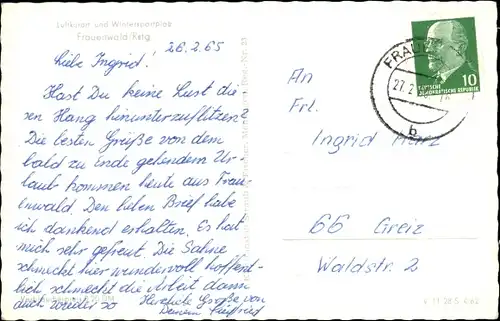 Luftkurort und Wintersportplatz
Frauenwald/Rstg.
26.2.65
Liebe Ingrid!
Hast Du keine Lust die
sen Hang hinunterzuflitzen?
Die besten Grüße von dem
bald zu Ende gehendem Ur-
laub kommen heute aus Frau
enwald. Den lieben Brief habe
ich dankend erhalten. Es hat
mich sehr gefreut. Die Sahne
schmeckt hier wundervoll hoffent-
lich schmeckt die Arbeit dann
auch wieder so Herzliche Grüße von
Deinem Siegfried
10
DEUTSCHE
DEMOKRATISCHE REPUBLIK
FRAUEN
27.2
b
An
Frl.
Ingrid
66 Greiz
Waldstr. 2